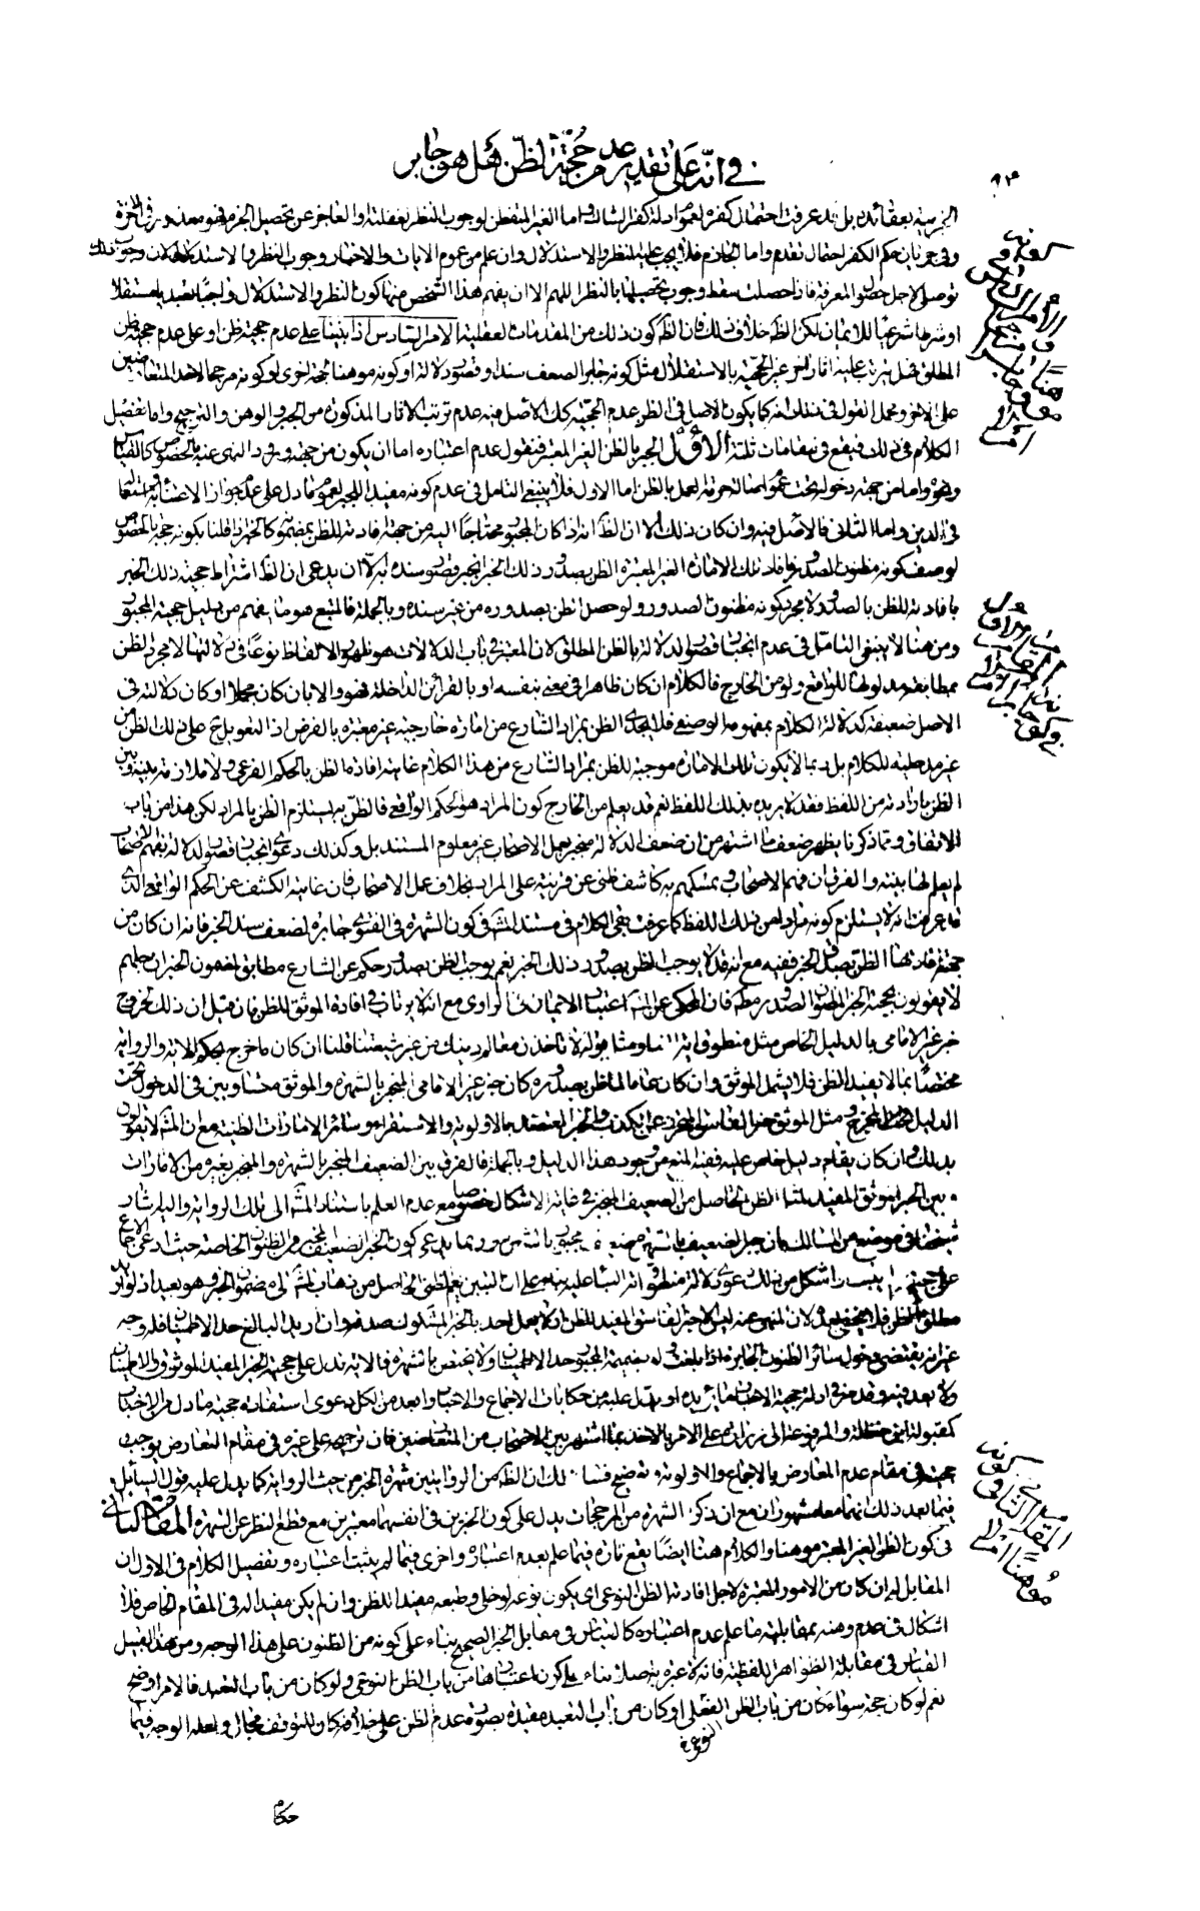 في انّه على تقدير عدم حجّيّة الظنّ هل هو جابر
الجزمية بعقائده بل قد عرفت احتمال كفره لعموم ادلة كفر الشاك واما الغير المتفطن لوجوب النظر لغفلته او العاجز عن تحصيل الجزم فهو معذور في الاخرة
وفي جريان حكم الكفر احتمال تقدم واما الجازم فلا يجب عليه النظر والاستدلال وان علم من عموم الايات والاخبار وجوب النظر والاستدلال لان وجوب ذلك
توصلي لاجل حصول المعرفة فاذا حصلت سقط وجوب تحصيلها بالنظر اللهم الا ان يفهم هذا الشخص منها كون النظر والاستدلال واجبا تعبديا مستقلا
او شرطا شرعيا للايمان لكن الظ خلاف ذلك فان الظ كون ذلك من المقدمات العقلية الامر السادس اذا بنينا على عدم حجية ظن او على عدم حجية ظن
المطلق فهل يترتب عليه اثار اخر غير الحجية بالاستقلال مثل كونه جابرا لضعف سند او قصور دلالة او كونه موهنا لحجة اخرى او كونه مرجحا لاحد المتعارضين
على الاخر ومجمل القول في ذلك انه كما يكون الاصل في الظن عدم الحجية كذلك الاصل فيه عدم ترتب الاثار المذكورة من الجبر والوهن والترجيح واما تفصيل
الكلام في ذلك فيقع في مقامات ثلثة الاوّل الجبر بالظن الغير المعتبر فنقول عدم اعتباره اما ان يكون من جهة ورود النهي عنه بالخصوص كالقياس
ونحوه واما من جهة دخوله تحت عموم اصالة حرمة العمل بالظن اما الاول فلا ينبغي التامل في عدم كونه مفيدا للجبر لعموم ما دل على عدم جواز الاعتناء به واستعماله
في الدين واما الثاني فالاصل فيه وان كان ذلك الا ان الظ انه اذا كان المجبور محتاجا اليه من جهة افادته للظن بمضمونه كالخبر اذا قلنا بكونه حجة بالخصوص
لوصف كونه مظنون الصدور فافاد تلك الامارة الغير المعتبرة الظن بصدور ذلك الخبر انجبر قصور سنده به الا ان يدعى ان الظ اشتراط حجية ذلك الخبر
بافادته للظن بالصدور لا مجرد كونه مظنون الصدور ولو حصل الظن بصدوره من غير سنده وبالجملة فالمتبع هو ما يفهم من دليل حجية المجبور
ومن هنا لا ينبغي التامل في عدم انجبار قصور الدلالة بالظن المطلق لان المعتبر في باب الدلالات هو ظهور الالفاظ نوعا في دلالتها لا مجرد الظن
بمطابقة مدلولها للواقع ولو من الخارج فالكلام ان كان ظاهرا في معنى بنفسه او بالقرائن الداخلة فهو والا بان كان مجملا او كان دلالته في
الاصل ضعيفة كدلالة الكلام بمفهومه الوصفي فلا يجدي الظن بمراد الشارع من امارة خارجية غير معتبرة بالفرض اذ التعويل ح على ذلك الظن من
غير مدخلية للكلام بل ربما لا يكون تلك الامارة موجبة للظن بمراد الشارع من هذا الكلام غايته افادة الظن بالحكم الفرعي ولا ملازمة بينه وبين
الظن بارادته من اللفظ فقد لا يريده بذلك اللفظ نعم قد يعلم من الخارج كون المراد هو الحكم الواقعي فالظن به يستلزم الظن بالمراد لكن هذا من باب
الاتفاق ومما ذكرنا يظهر ضعف ما اشتهر من ان ضعف الدلالة منجبر بعمل الاصحاب غير معلوم المستند بل وكذلك دعوى انجبار قصور الدلالة بفهم الاصحاب
لم يعلم لها بينة والفرق ان فهم الاصحاب وتمسكهم به كاشف ظني عن قرينة على المراد بخلاف عمل الاصحاب فان غايته الكشف عن الحكم الواقعي الذي
قد عرفت انه لا يستلزم كونه مرادا من ذلك اللفظ كما عرفت بقي الكلام في مستند المشهور في كون الشهرة في الفتوى جابرة لضعف سند الخبر فانه ان كان من
جهة افادتها الظن بصدق الخبر ففيه مع انه قد لا يوجب الظن بصدور ذلك الخبر نعم يوجب الظن بصدور حكم عن الشارع مطابق لمضمون الخبر ان جلهم
لا يقولون بحجية الخبر المظنون الصدور مطلقا فان المحكي عن المشهور اعتبار الايمان في الراوي مع انه لا يرتاب في افادة الموثق للظن فان قيل ان ذلك لخروج
خبر غير الامامي بالدليل الخاص مثل منطوق اية النبأ ومثل قوله لا تأخذن معالم دينك من غير شيعتنا قلنا ان كان ما خرج بحكم الاية والرواية
مختصا بما لا يفيد الظن فلا يشمل الموثق وان كان عاما لما ظن بصدوره كان خبر غير الامامي المنجبر بالشهرة والموثق متساويين في الدخول تحت
الدليل المخرج ومثل الموثق خبر الفاسق المتحرز عن الكذب والخبر المعتضد بالاولوية والاستقراء وسائر الامارات الظنية مع ان المشهور لا يقولون
بذلك وان كان لقيام دليل خاص عليه ففيه المنع من وجود هذا الدليل وبالجملة فالفرق بين الضعيف المنجبر بالشهرة والمنجبر بغيره من الامارات
وبين الخبر الموثق المفيد لمثل الظن الحاصل من الضعيف المنجبر في غاية الاشكال خصوصا مع عدم العلم باستناد المشهور الى تلك الرواية واليه اشار
شيخنا في موضع من المسالك بان جبر الضعيف بالشهرة ضعيف مجبور بالشهرة وربما يدعى كون الخبر الضعيف المنجبر من الظنون الخاصة حيث ادعى الاجماع
على حجيته ولم يثبت واشكل من ذلك دعوى دلالة منطوق اية النبأ عليه بناء على ان التبين يعم الظني الحاصل من ذهاب المشهور الى مضمون الخبر وهو بعيد اذ لو اريد
مطلق الظن فلا يخفى بعده لان المنهي عنه ليس الا خبر الفاسق المفيد للظن اذ لا يعمل احد بالخبر المشكوك صدقه وان اريد البالغ حد الاطمينان فله وجه
غير انه يقتضي دخول سائر الظنون الجابرة اذا بلغت ولو بضميمة المجبور حد الاطمينان ولا يختص بالشهرة فالاية تدل على حجية الخبر المفيد للوثوق والاطمينان
ولا بعد فيه وقد مر في ادلة حجية الاخبار ما يؤيده او يدل عليه من حكايات الاجماع والاخبار وابعد من الكل دعوى استفادة حجيته مما دل من الاخبار
كمقبولة ابن حنظلة والمرفوعة الى زرارة على الامر بالاخذ بما اشتهر بين الاصحاب من المتعارضين فان ترجيحه على غيره في مقام التعارض يوجب
حجيته في مقام عدم المعارض بالاجماع والاولوية وتوضيح فساد ذلك ان الظ من الروايتين شهرة الخبر من حيث الرواية كما يدل عليه قول السائل
فيما بعد ذلك انهما معا مشهوران مع ان ذكر الشهرة من المرجحات يدل على كون الخبرين في انفسهما معتبرين مع قطع النظر عن الشهرة المقام الثاني
في كون الظن الغير المعتبر موهنا والكلام هنا ايضا يقع تارة فيما علم بعدم اعتباره واخرى فيما لم يثبت اعتباره وتفصيل الكلام في الاول ان
المقابل له ان كان من الامور المعتبرة لاجل افادته الظن النوعي اي يكون نوعه لو خلي وطبعه مفيدا للظن وان لم يكن مفيدا له في المقام الخاص فلا
اشكال في عدم وهنه بمقابلته ما علم عدم اعتباره كالقياس في مقابل الخبر الصحيح بناء على كونه من الظنون على هذا الوجه ومن هذا القبيل
القياس في مقابلة الظواهر اللفظية فانه لا عبرة به اصلا بناء على كون اعتبارها من باب الظن النوعي ولو كان من باب التعبد فالامر اوضح
نعم لو كان حجة سواء كان من باب الظن الفعلي او كان من باب التعبد مقيدة بصورة عدم الظن على خلافه كان للتوقف مجال ولعله الوجه فيما
النوعي
حكاه
الأمر السادس في كونه
موهنا او مرجحا او جابرا
ام لا
المقام الاول
في كونه جابرا ام لا
المقام الثاني في كونه
موهنا ام لا